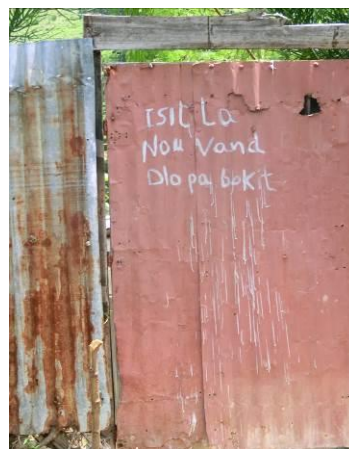 ISIT La
Nou Vand
Dlo pa bokit